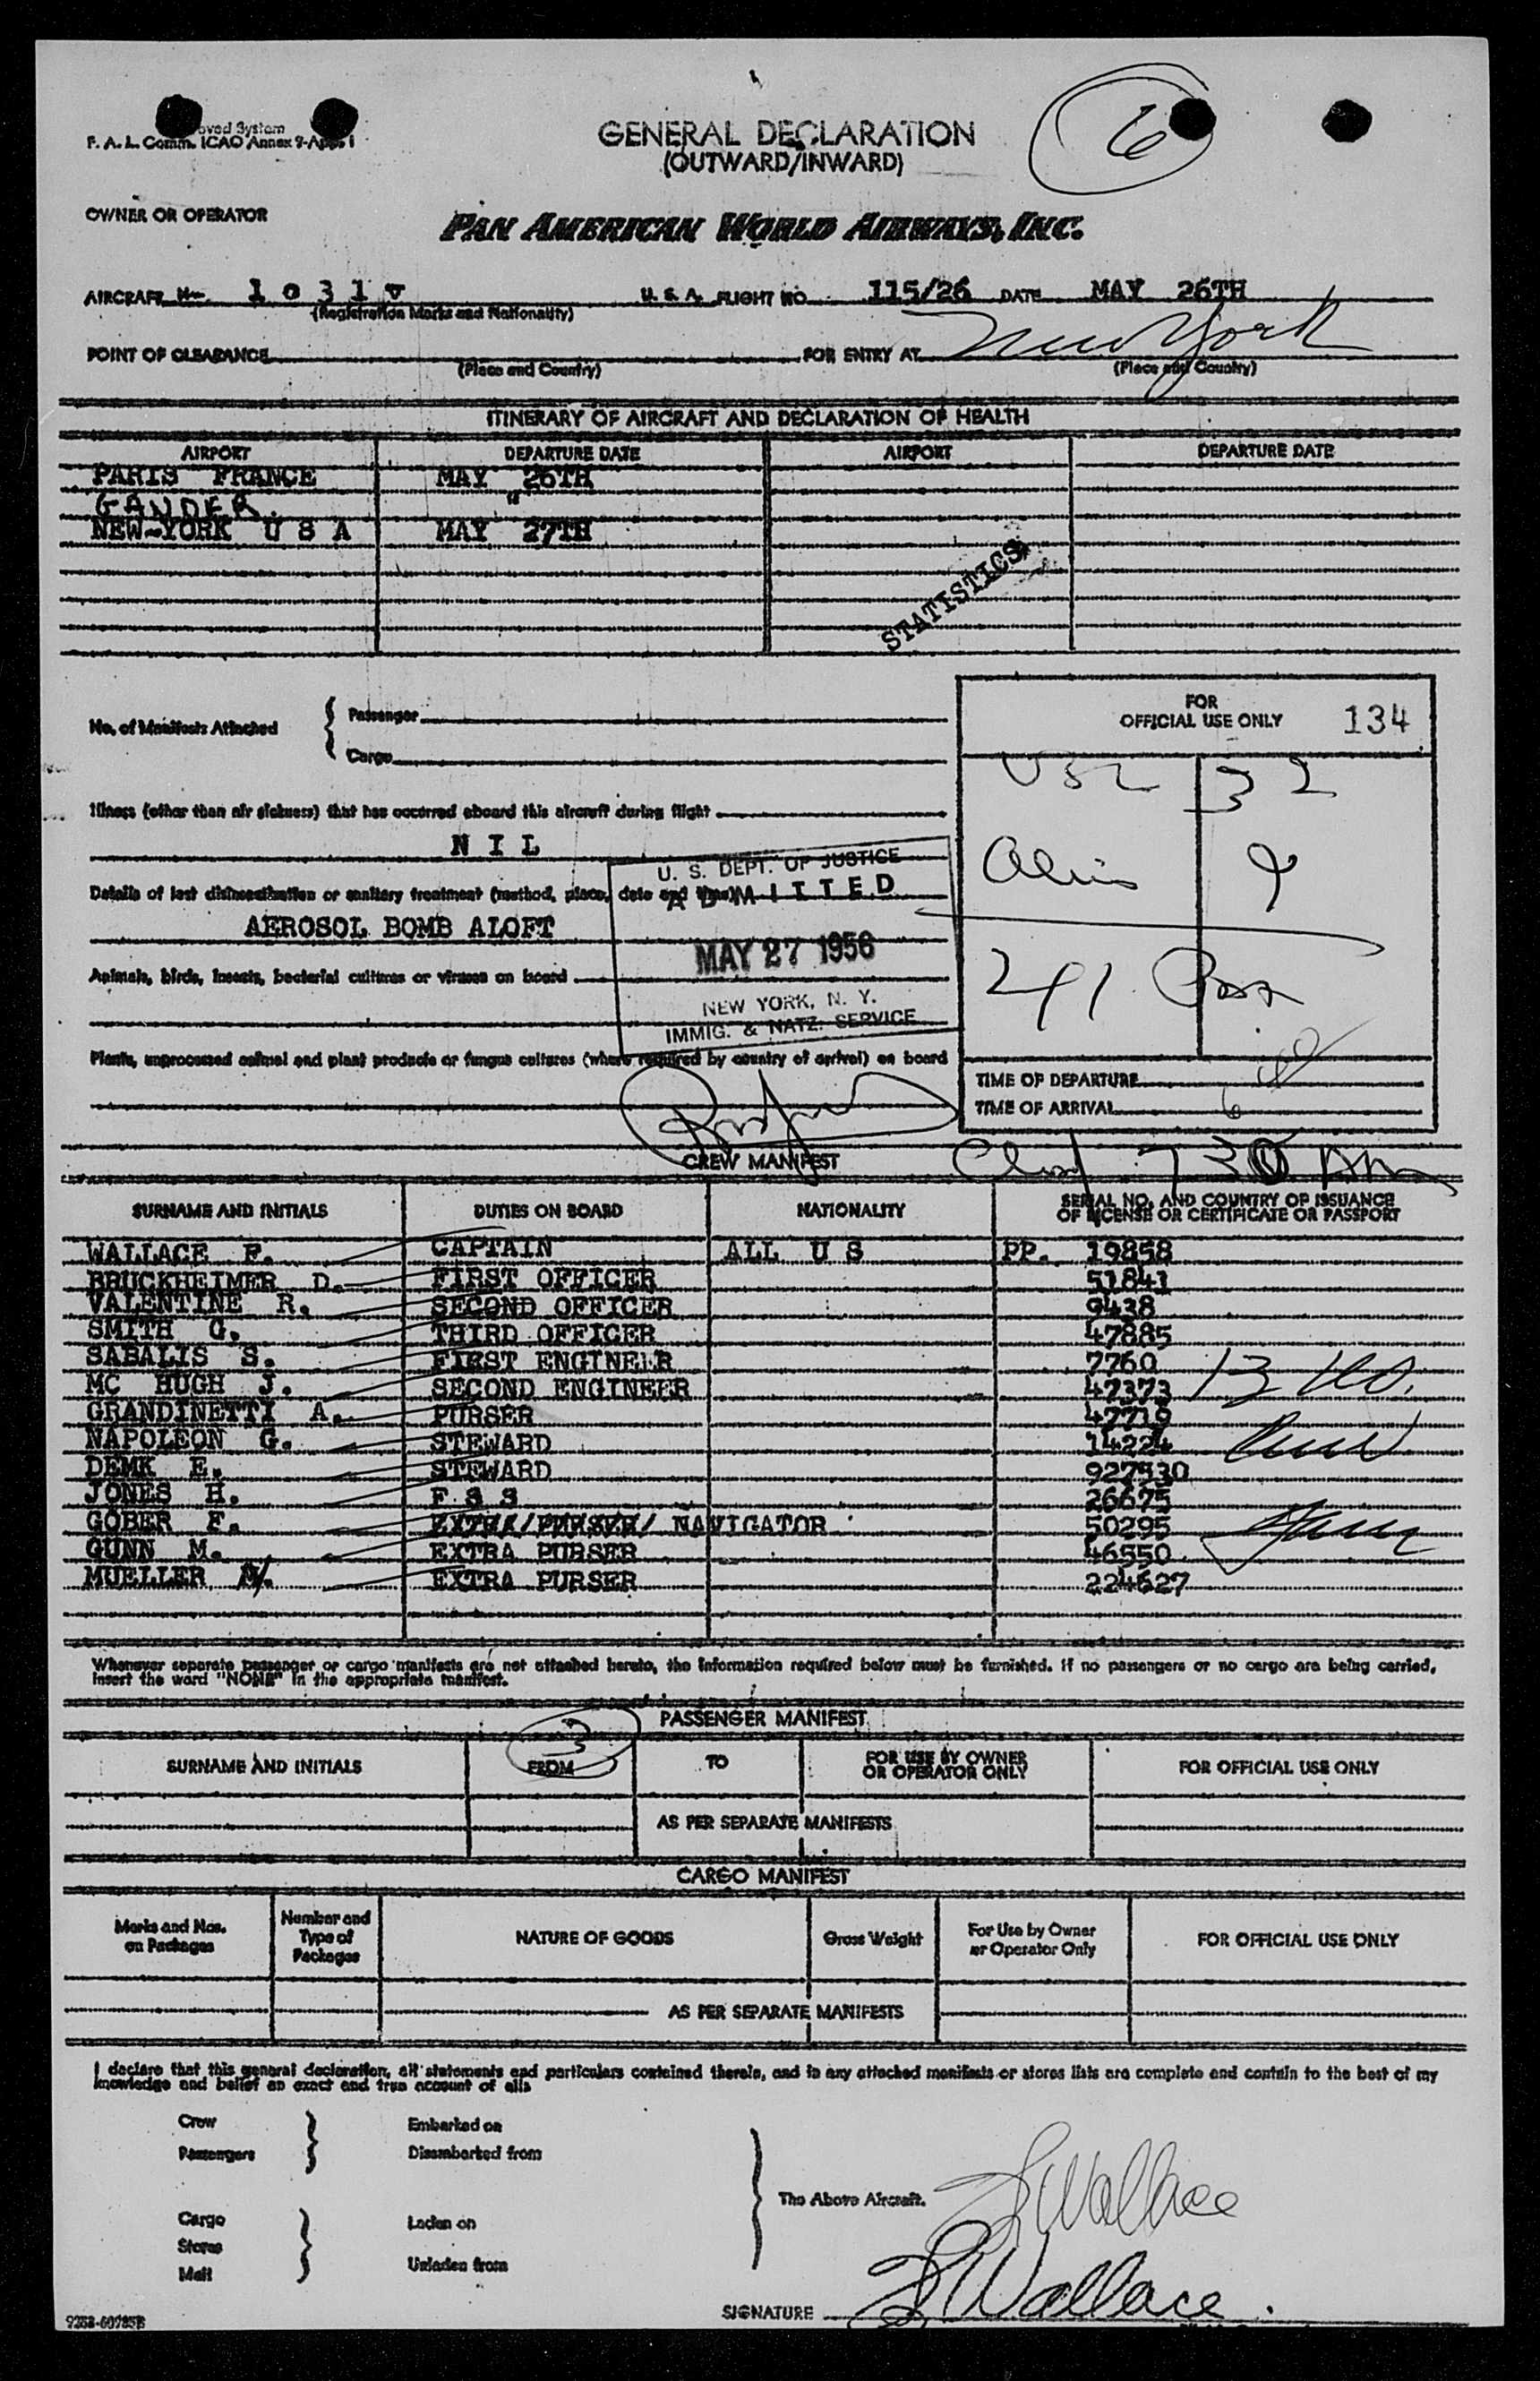 oved System
F. A. L. Comm. ICAO Annex 9-App. 1
GENERAL DECLARATION
(OUTWARD/INWARD)
6
OWNER OR OPERATOR
PAN AMERICAN WORLD AIRWAYS, INC.
AIRCRAFT N- 1 0 3 1 V U. S. A. FLIGHT NO. 115/26 DATE MAY 26TH
(Registration Marks and Nationality)
POINT OF CLEARANCE FOR ENTRY AT New York
(Place and Country) (Place and Country)
ITINERARY OF AIRCRAFT AND DECLARATION OF HEALTH
AIRPORT DEPARTURE DATE AIRPORT DEPARTURE DATE
PARIS FRANCE MAY 26TH
GANDER. "
NEW-YORK U S A MAY 27TH
STATISTICS
No. of Manifests Attached { Passenger
Cargo
FOR
OFFICIAL USE ONLY 134
USC 32
Alins 9
241 Pax
Illness (other than air sickness) that has occurred aboard this aircraft during flight
N I L
Details of last disinsectization or sanitary treatment (method, place, date and time)
AEROSOL BOMB ALOFT
U. S. DEPT. OF JUSTICE
A D M I T T E D
MAY 27 1956
NEW YORK, N. Y.
IMMIG. & NATZ. SERVICE
Animals, birds, insects, bacterial cultures or viruses on board
Plants, unprocessed animal and plant products or fungus cultures (where required by country of arrival) on board
TIME OF DEPARTURE
TIME OF ARRIVAL 6
CREW MANIFEST
730 AM
SURNAME AND INITIALS DUTIES ON BOARD NATIONALITY SERIAL NO. AND COUNTRY OF ISSUANCE
OF LICENSE OR CERTIFICATE OR PASSPORT
WALLACE F. CAPTAIN ALL U S PP. 19858
BRUCKHEIMER D. FIRST OFFICER 51841
VALENTINE R. SECOND OFFICER 9438
SMITH G. THIRD OFFICER 47885
SABALIS S. FIRST ENGINEER 7760
MC HUGH J. SECOND ENGINEER 47373
GRANDINETTI A. PURSER 47719
NAPOLEON G. STEWARD 14224
DEMK E. STEWARD 927530
JONES H. F S S 26675
GOBER F. EXTRA/PURSER/ NAVIGATOR 50295
GUNN M. EXTRA PURSER 46550
MUELLER EXTRA PURSER 224627
13
Whenever separate passenger or cargo manifests are not attached hereto, the information required below must be furnished. If no passengers or no cargo are being carried,
insert the word "NONE" in the appropriate manifest.
PASSENGER MANIFEST
3
SURNAME AND INITIALS FROM TO FOR USE BY OWNER
OR OPERATOR ONLY FOR OFFICIAL USE ONLY
AS PER SEPARATE MANIFESTS
CARGO MANIFEST
Marks and Nos.
on Packages Number and
Type of
Packages NATURE OF GOODS Gross Weight For Use by Owner
or Operator Only FOR OFFICIAL USE ONLY
AS PER SEPARATE MANIFESTS
I declare that this general declaration, all statements and particulars contained therein, and in any attached manifests or stores lists are complete and contain to the best of my
knowledge and belief an exact and true account of all:
Crew Embarked on
Passengers Disembarked from
The Above Aircraft.
Cargo Laden on
Stores
Mail Unladen from
F Wallace
SIGNATURE F Wallace.
9268-60785B